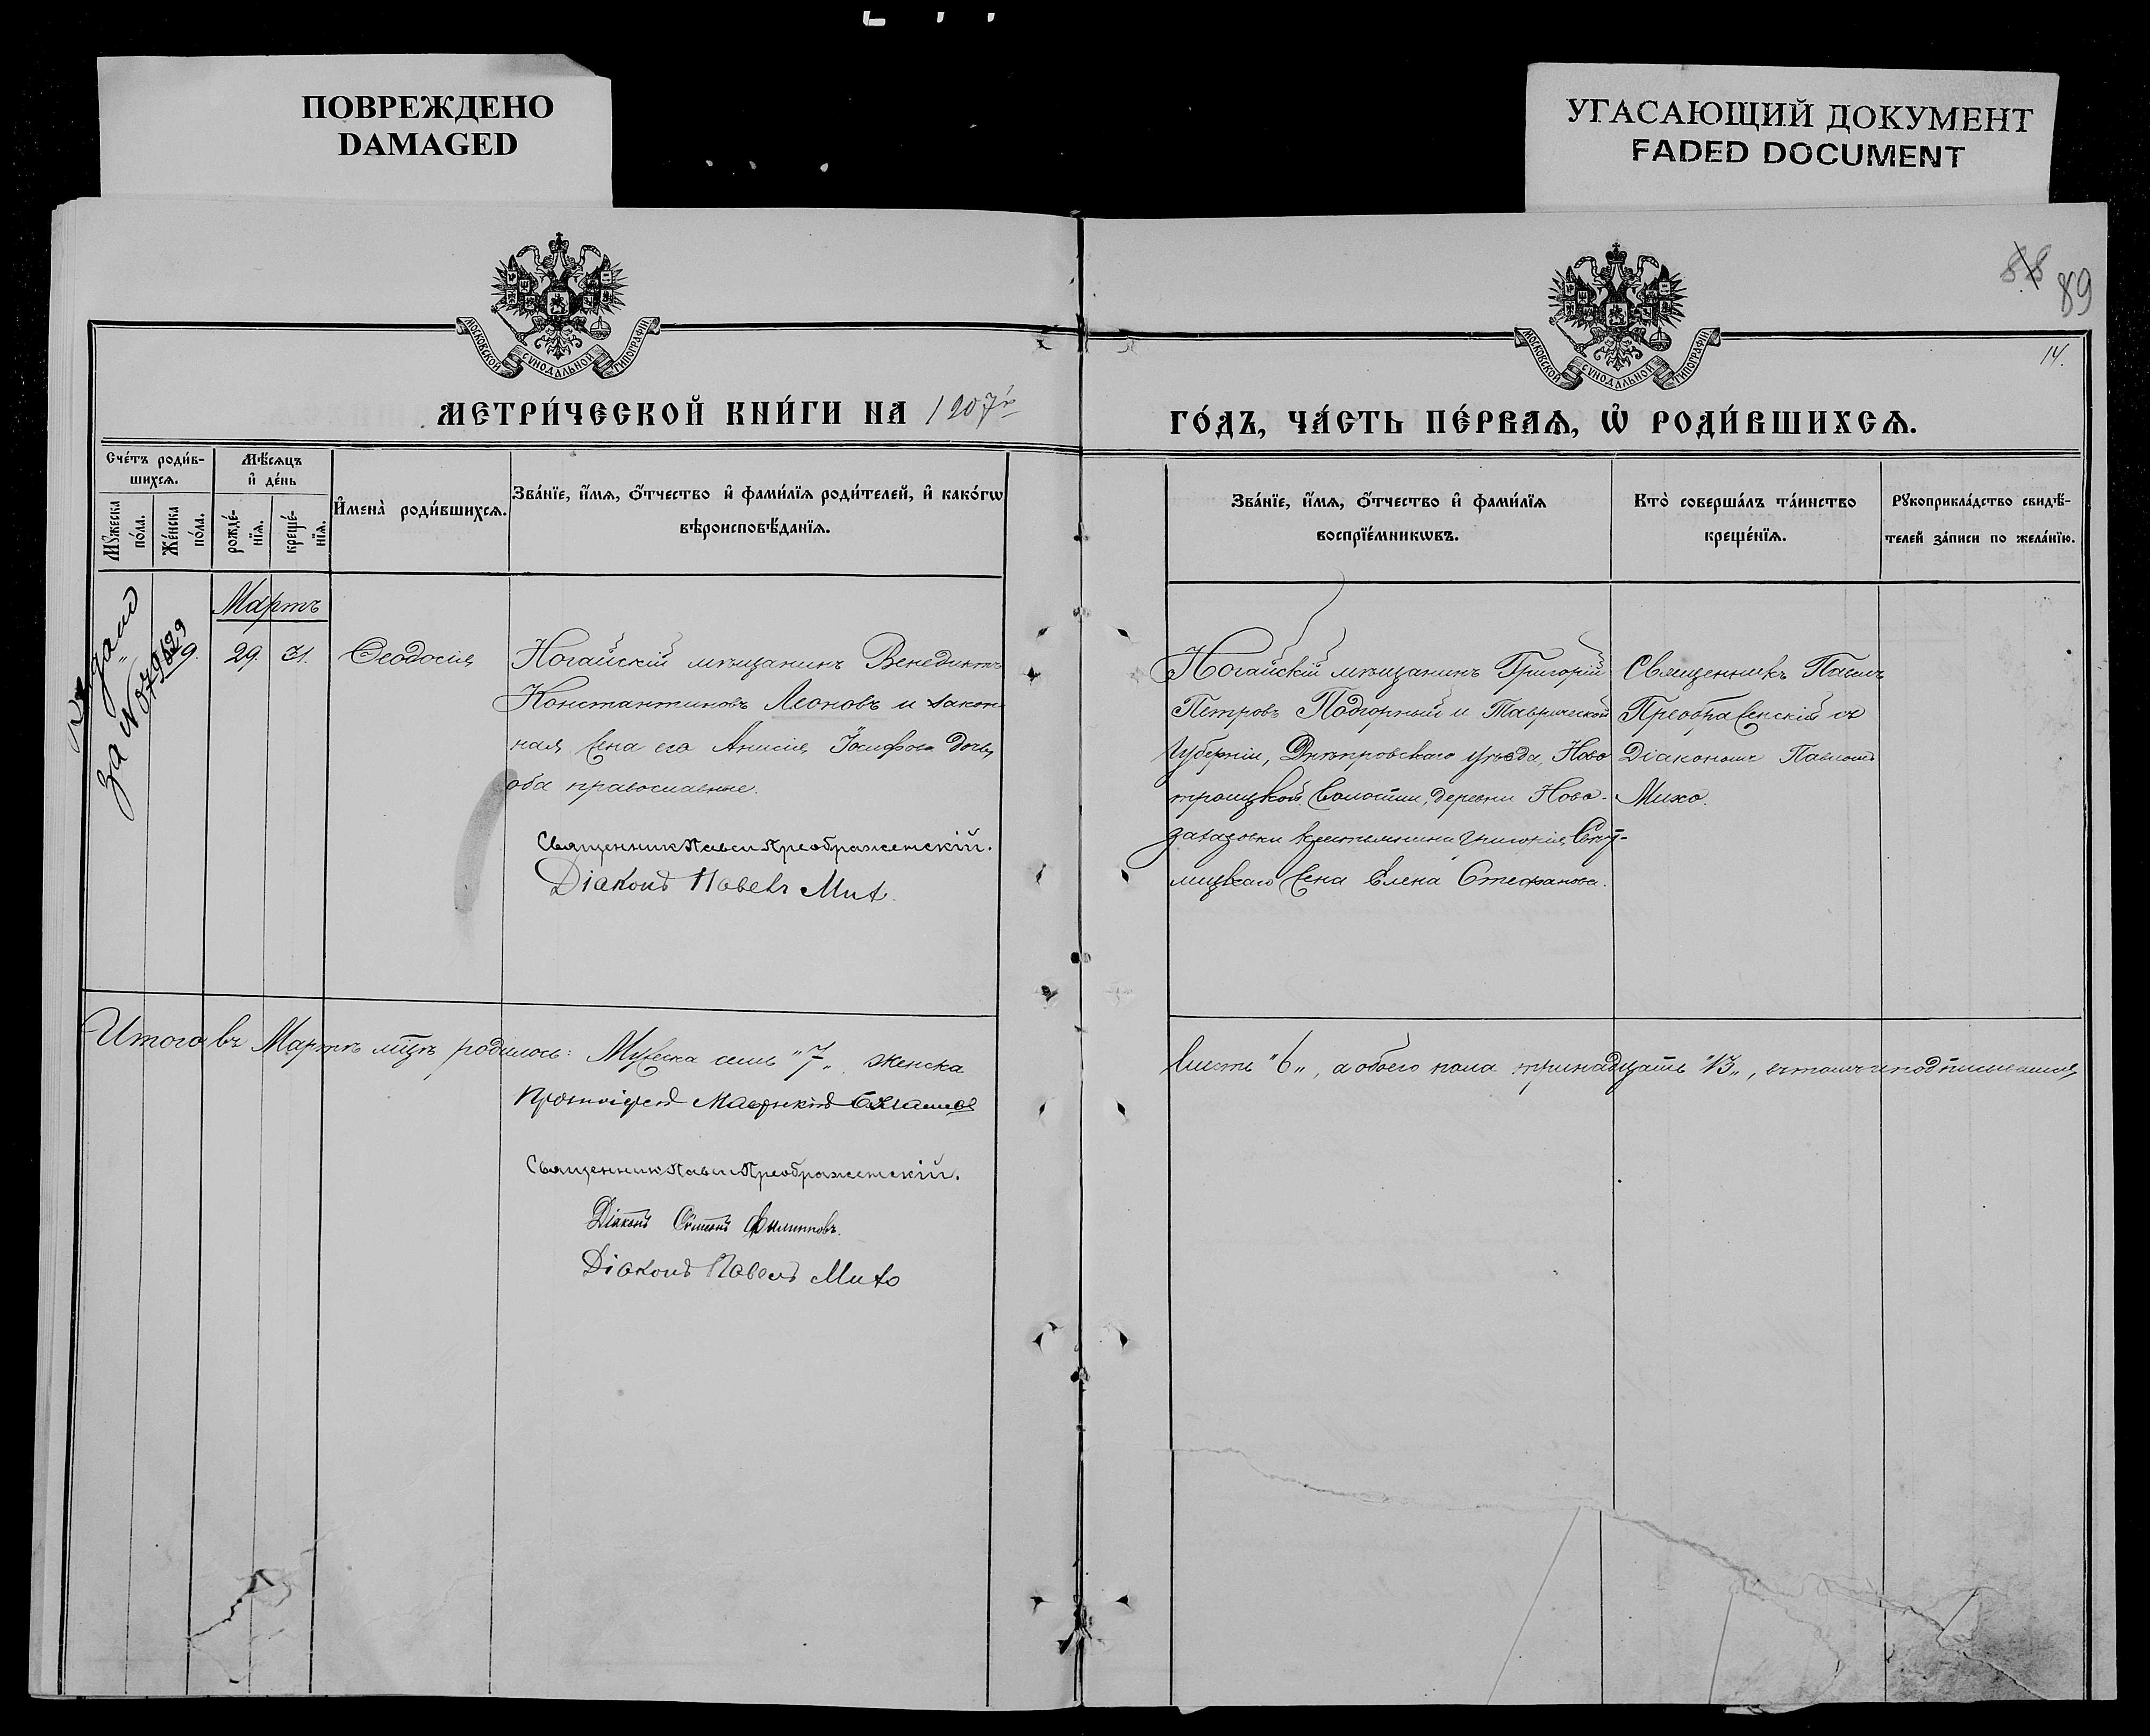 ПОВРЕЖДЕНО
DAMAGED
УГАСАЮЩИЙ ДОКУМЕНТ
FADED DOCUMENT
88 89
14.
МОСКОВСКОЙ СУНОДАЛЬНОЙ ТИПОГРАФІИ
МОСКОВСКОЙ СУНОДАЛЬНОЙ ТИПОГРАФІИ
МЕТРИ́ЧЕСКОЙ КНИ́ГИ НА 1907й
ГО́ДЪ, ЧА́СТЬ ПЕ́РВАѦ, Ѡ҆ РОДИ́ВШИХСѦ.
Сче́тъ роди́в-
шихсѧ.
Мꙋ́жеска по́ла.
Же́нска по́ла.
Мѣ́сѧцъ
и҆ де́нь
рожде́-нїѧ.
креще́-нїѧ.
И҆мена̀ роди́вшихсѧ.
Зва́нїе, и҆́мѧ, ѻ҆́тчество и҆ фами́лїѧ роди́телей, и҆ како́гѡ
вѣроисповѣ́данїѧ.
Зва́нїе, и҆́мѧ, ѻ҆́тчество и҆ фами́лїѧ
воспрїе́мникѡвъ.
Кто̀ соверша́лъ та́инство
креще́нїѧ.
Рꙋкоприкла́дство свидѣ́-
телей за́писи по жела́нїю.
Мартъ
за №
9. 29. 31. Ѳеодосія
Ногайскій мѣщанинъ Венедиктъ
Константиновъ Леоновъ и закон-
ная жена его Анисія Іосифова дочь,
оба православные.
Священникъ Павелъ Преображенскій.
Діаконъ Павелъ Михо
Ногайскій мѣщанинъ Григорій
Петровъ Подгорный и Таврической
губерніи, Днѣпровскаго уѣзда, Ново-
троицкой волости, деревни Ново-
крестьянина
жена Елена Стефанова.
Священникъ Павелъ
Преображенскій съ
Діакономъ Павломъ
Михо.
Итого въ Мартѣ мцѣ родилось: Мужеска семь „7„, женска
шесть „6„, а обоего пола тринадцать „13„, въ томъ и подписываемся
Протоіерей
Священникъ Павелъ Преображенскій.
Діаконъ Симеонъ Филипповъ.
Діаконъ Павелъ Михо